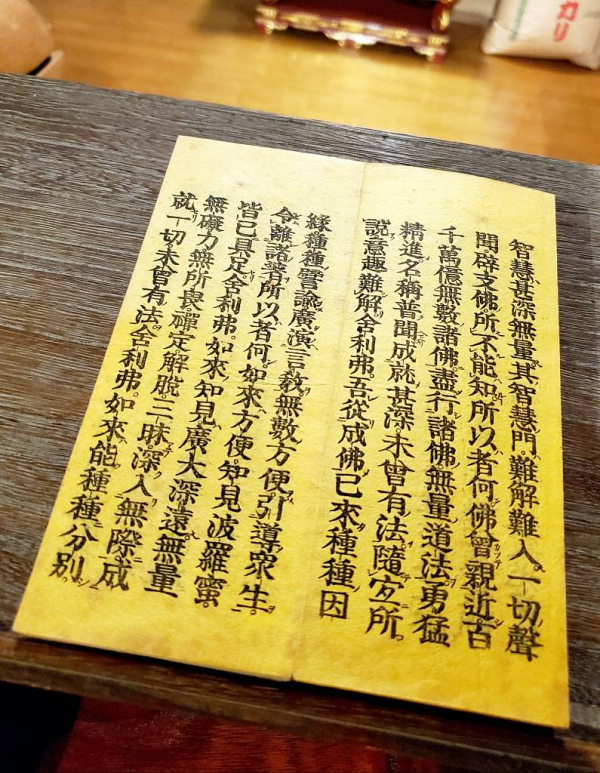 智慧甚深無量其智慧門。難解難入。一切聲
聞辟支佛所不能知所以者何佛曾親近百
千萬億無數諸佛。盡行諸佛。無量道法勇猛
精進名稱普聞成就甚深未曾有法隨宜所。
說意趣難解舍利弗。吾從成佛已來種種因
緣種種譬諭廣演言教無數方便引導眾生。
令離諸著所以者何。如來方便知見波羅蜜
皆已具足舍利弗。如來知見廣大深遠無量
無礙力無所畏。禪定解脫。三昧深入無際成
就一切未曾有法舍利弗。如來能種種分別
カリ